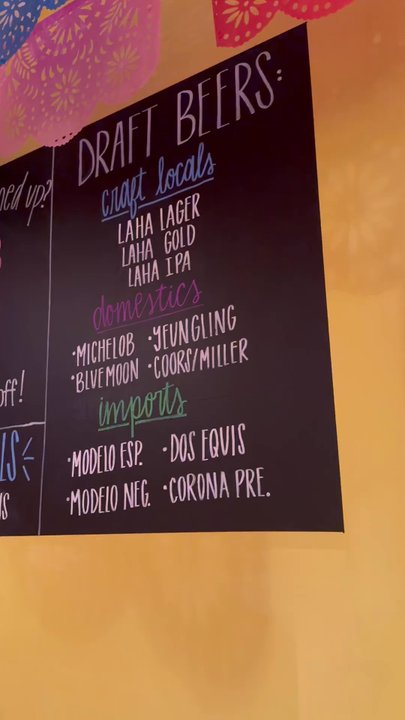 ned up?
off!
LS
US
DRAFT BEERS:
craft locals
LAHA LAGER
LAHA GOLD
LAHA IPA
domestics
•MICHELOB •YEUNGLING
•BLUE MOON •COORS/MILLER
imports
•MODELO ESP. •DOS EQUIS
•MODELO NEG. •CORONA PRE.